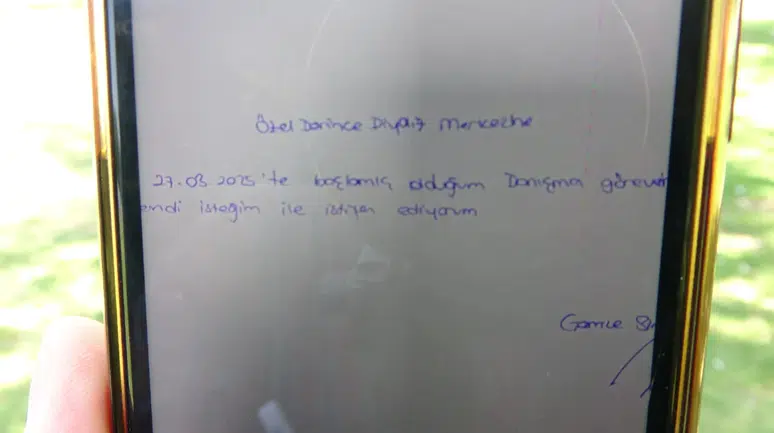 Özel Darince Diyaliz Merkezine
27.03.2025'te başlamış olduğum Danışma görevi
endi isteğim ile istifa ediyorum
Gamze